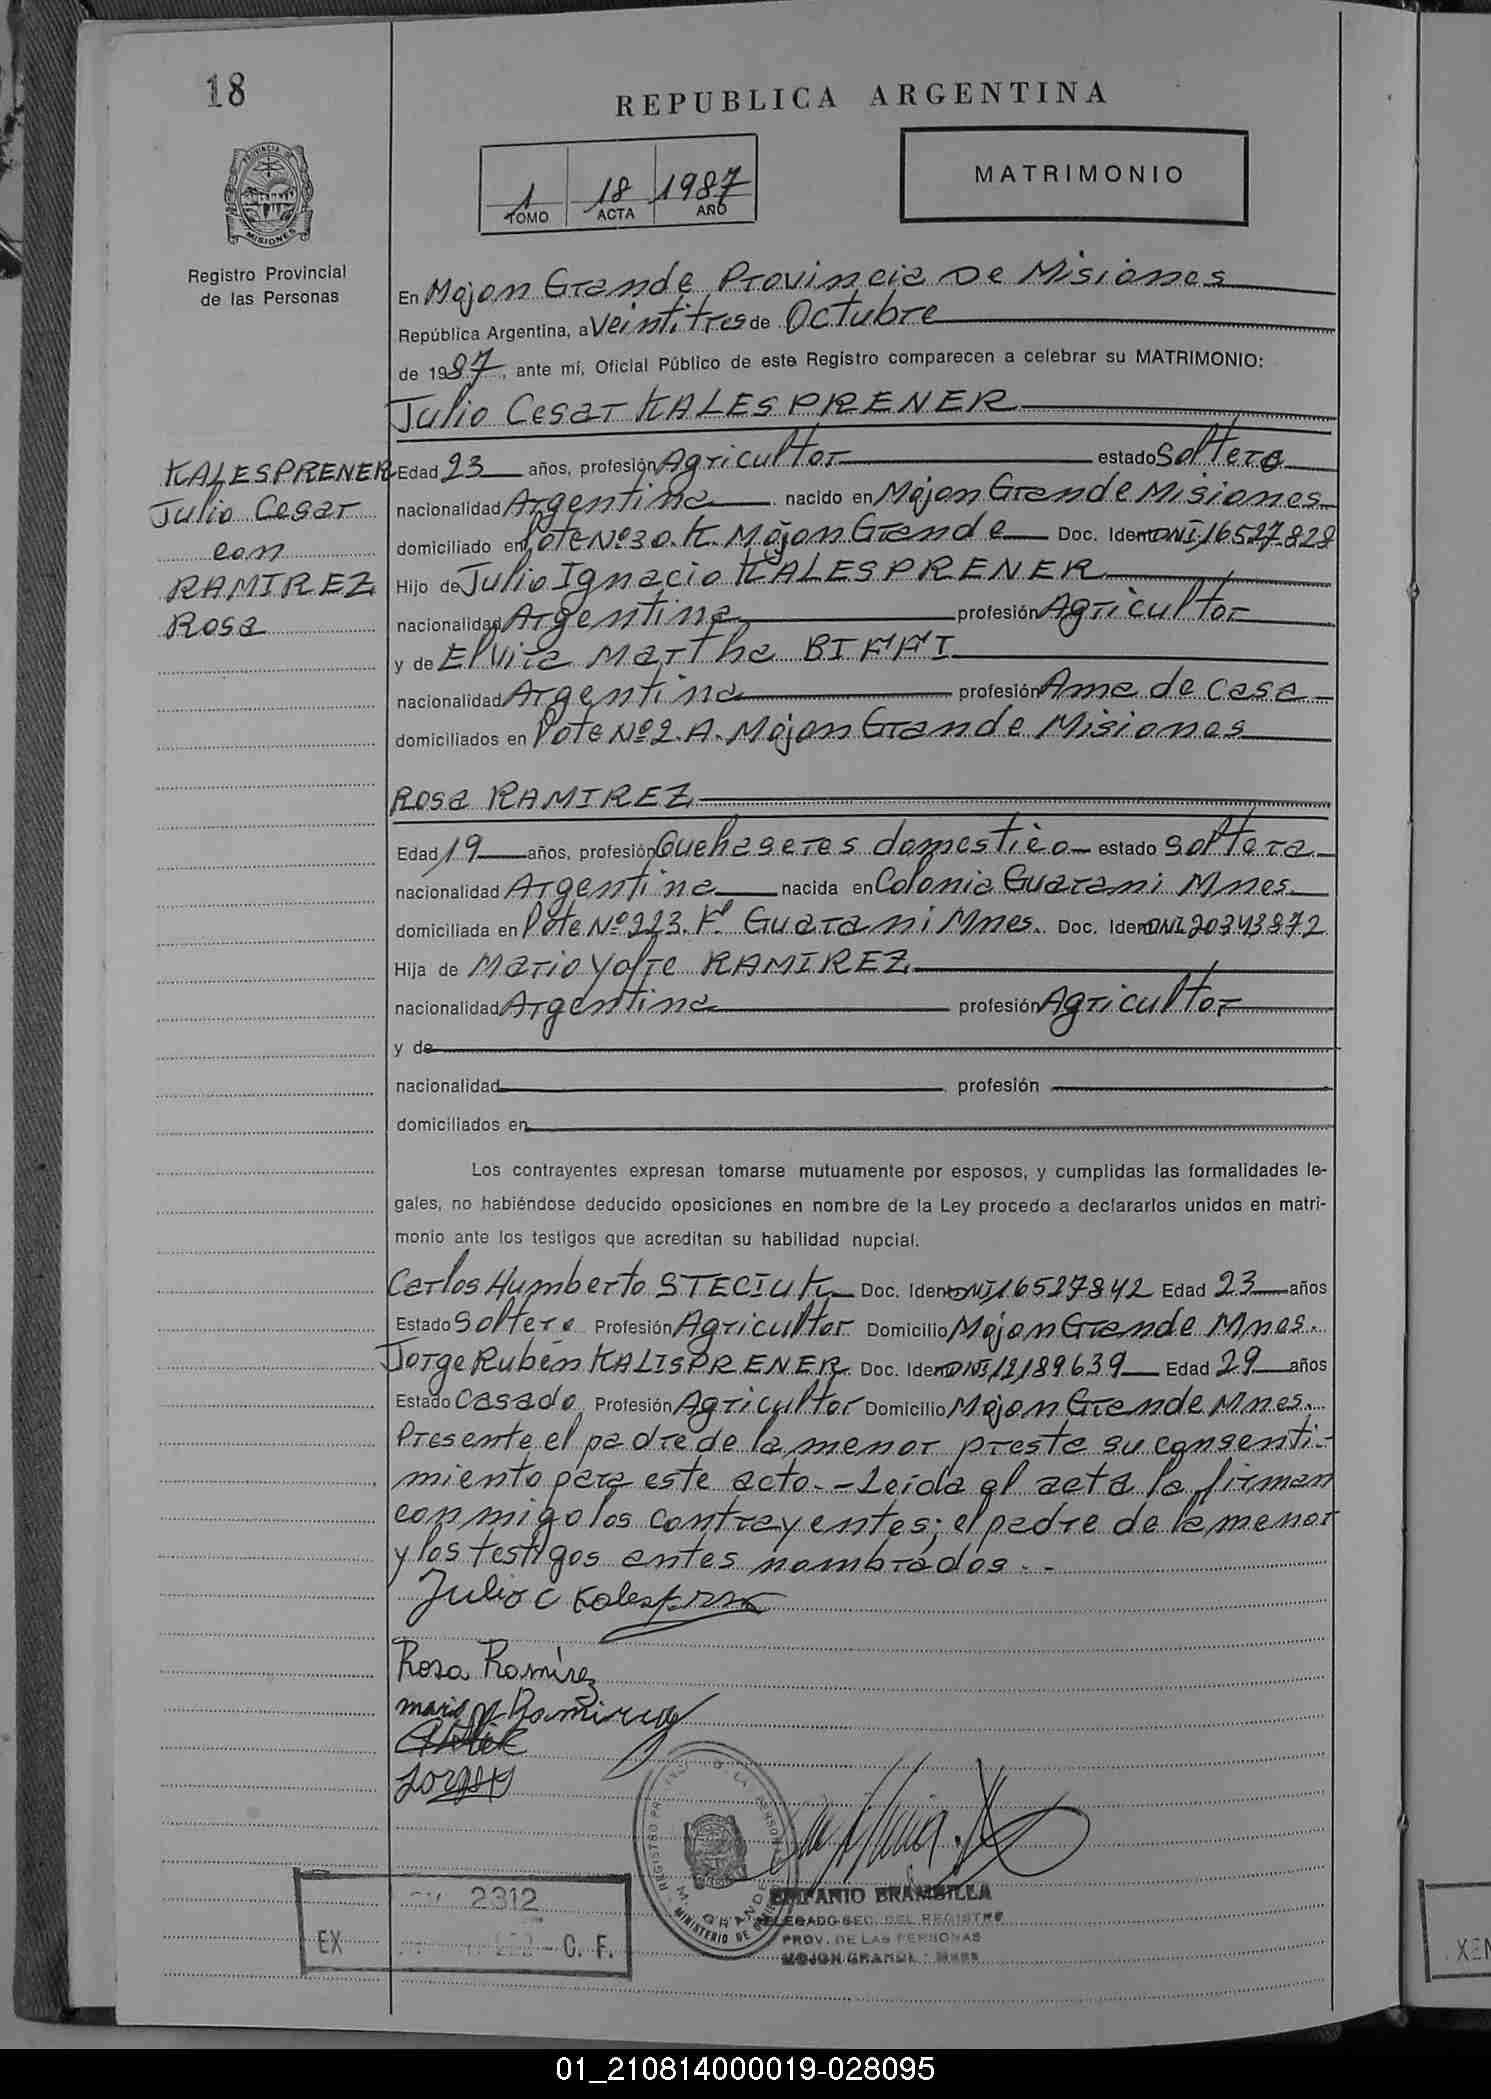 18
REPUBLICA ARGENTINA
PROVINCIA DE
MISIONES
Registro Provincial
de las Personas
1 18 1987
TOMO ACTA AÑO
MATRIMONIO
En Mojon Grande Provincia De Misiones
República Argentina, a Veintitres de Octubre
de 1987, ante mí, Oficial Público de este Registro comparecen a celebrar su MATRIMONIO:
Julio Cesar KALESPRENER
KALESPRENER
Julio Cesar
con
RAMIREZ
Rosa
Edad 23 años, profesión Agricultor estado Soltero
nacionalidad Argentina nacido en Mojon Grande Misiones
domiciliado en Lote Nº 30.K. Mojon Grande Doc. Ident DNI 16527828
Hijo de Julio Ignacio KALESPRENER
nacionalidad Argentina profesión Agricultor
y de Elvira Martha BIFFI
nacionalidad Argentina profesión Ama de Casa
domiciliados en Lote Nº 2.A. Mojon Grande Misiones
Rosa RAMIREZ
Edad 19 años, profesión Quehaseres domestico estado Soltera
nacionalidad Argentina nacida en Colonia Guarani Mnes
domiciliada en Lote Nº 223. Guarani Mnes. Doc. Iden DNI 20343872
Hija de Mario Yolre RAMIREZ
nacionalidad Argentina profesión Agricultor
y de
nacionalidad profesión
domiciliados en
Los contrayentes expresan tomarse mutuamente por esposos, y cumplidas las formalidades le-
gales, no habiéndose deducido oposiciones en nombre de la Ley procedo a declararlos unidos en matri-
monio ante los testigos que acreditan su habilidad nupcial.
Carlos Humberto STECIUK Doc. Iden DNI 16527842 Edad 23 años
Estado Soltero Profesión Agricultor Domicilio Mojon Grande Mnes.
Jorge Rubén KALISPRENER Doc. Iden DNI 12189639 Edad 29 años
Estado Casado Profesión Agricultor Domicilio Mojon Grande Mnes.
Presente el padre de la menor presta su consenti-
miento para este acto.- Leída el acta la firman
conmigo los contrayentes; el padre de la menor
y los testigos antes nombrados.-
Julio C Kalesprener
Rosa Ramírez
mario y Ramirez
Jorge K
M. GRANDE
MINISTERIO DE
EPIFANIO BRAMBILLA
DELEGADO SEC. DEL REGISTRO
PROV. DE LAS PERSONAS
MOJON GRANDE - Mnes
2312
EX - C. F.
XEN
01_210814000019-028095